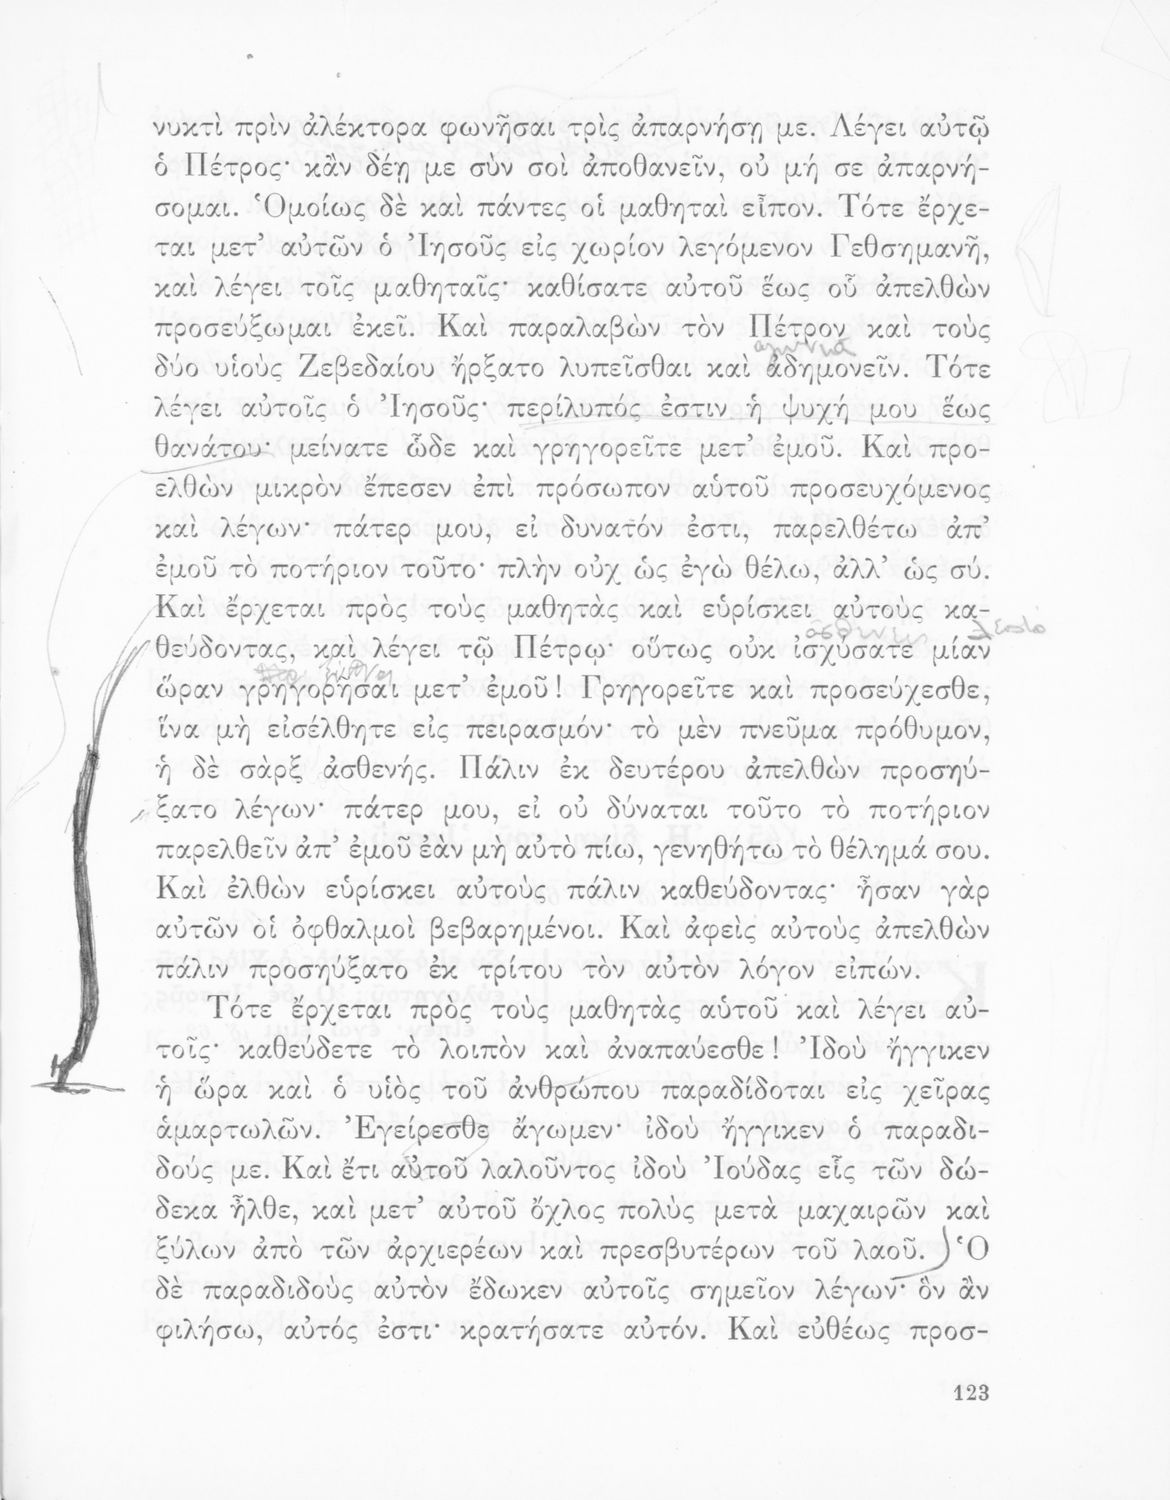 νυκτὶ πρὶν ἀλέκτορα φωνῆσαι τρὶς ἀπαρνήσῃ με. Λέγει αὐτῷ
ὁ Πέτρος· κἂν δέῃ με σὺν σοὶ ἀποθανεῖν, οὐ μή σε ἀπαρνή-
σομαι. Ὁμοίως δὲ καὶ πάντες οἱ μαθηταὶ εἶπον. Τότε ἔρχε-
ται μετ’ αὐτῶν ὁ Ἰησοῦς εἰς χωρίον λεγόμενον Γεθσημανῆ,
καὶ λέγει τοῖς μαθηταῖς· καθίσατε αὐτοῦ ἕως οὗ ἀπελθὼν
προσεύξωμαι ἐκεῖ. Καὶ παραλαβὼν τὸν Πέτρον καὶ τοὺς
δύο υἱοὺς Ζεβεδαίου ἤρξατο λυπεῖσθαι καὶ ἀδημονεῖν. Τότε
λέγει αὐτοῖς ὁ Ἰησοῦς· περίλυπός ἐστιν ἡ ψυχή μου ἕως
θανάτου· μείνατε ὧδε καὶ γρηγορεῖτε μετ’ ἐμοῦ. Καὶ προ-
ελθὼν μικρὸν ἔπεσεν ἐπὶ πρόσωπον αὑτοῦ προσευχόμενος
καὶ λέγων· πάτερ μου, εἰ δυνατόν ἐστι, παρελθέτω ἀπ’
ἐμοῦ τὸ ποτήριον τοῦτο· πλὴν οὐχ ὡς ἐγὼ θέλω, ἀλλ’ ὡς σύ.
Καὶ ἔρχεται πρὸς τοὺς μαθητὰς καὶ εὑρίσκει αὐτοὺς κα-
θεύδοντας, καὶ λέγει τῷ Πέτρῳ· οὕτως οὐκ ἰσχύσατε μίαν
ὥραν γρηγορῆσαι μετ’ ἐμοῦ! Γρηγορεῖτε καὶ προσεύχεσθε,
ἵνα μὴ εἰσέλθητε εἰς πειρασμόν· τὸ μὲν πνεῦμα πρόθυμον,
ἡ δὲ σὰρξ ἀσθενής. Πάλιν ἐκ δευτέρου ἀπελθὼν προσηύ-
ξατο λέγων· πάτερ μου, εἰ οὐ δύναται τοῦτο τὸ ποτήριον
παρελθεῖν ἀπ’ ἐμοῦ ἐὰν μὴ αὐτὸ πίω, γενηθήτω τὸ θέλημά σου.
Καὶ ἐλθὼν εὑρίσκει αὐτοὺς πάλιν καθεύδοντας· ἦσαν γὰρ
αὐτῶν οἱ ὀφθαλμοὶ βεβαρημένοι. Καὶ ἀφεὶς αὐτοὺς ἀπελθὼν
πάλιν προσηύξατο ἐκ τρίτου τὸν αὐτὸν λόγον εἰπών.
Τότε ἔρχεται πρὸς τοὺς μαθητὰς αὑτοῦ καὶ λέγει αὐ-
τοῖς· καθεύδετε τὸ λοιπὸν καὶ ἀναπαύεσθε! Ἰδοὺ ἤγγικεν
ἡ ὥρα καὶ ὁ υἱὸς τοῦ ἀνθρώπου παραδίδοται εἰς χεῖρας
ἁμαρτωλῶν. Ἐγείρεσθε ἄγωμεν· ἰδοὺ ἤγγικεν ὁ παραδι-
δούς με. Καὶ ἔτι αὐτοῦ λαλοῦντος ἰδοὺ Ἰούδας εἷς τῶν δώ-
δεκα ἦλθε, καὶ μετ’ αὐτοῦ ὄχλος πολὺς μετὰ μαχαιρῶν καὶ
ξύλων ἀπὸ τῶν ἀρχιερέων καὶ πρεσβυτέρων τοῦ λαοῦ. Ὁ
δὲ παραδιδοὺς αὐτὸν ἔδωκεν αὐτοῖς σημεῖον λέγων· ὃν ἂν
φιλήσω, αὐτός ἐστι· κρατήσατε αὐτόν. Καὶ εὐθέως προσ-
123